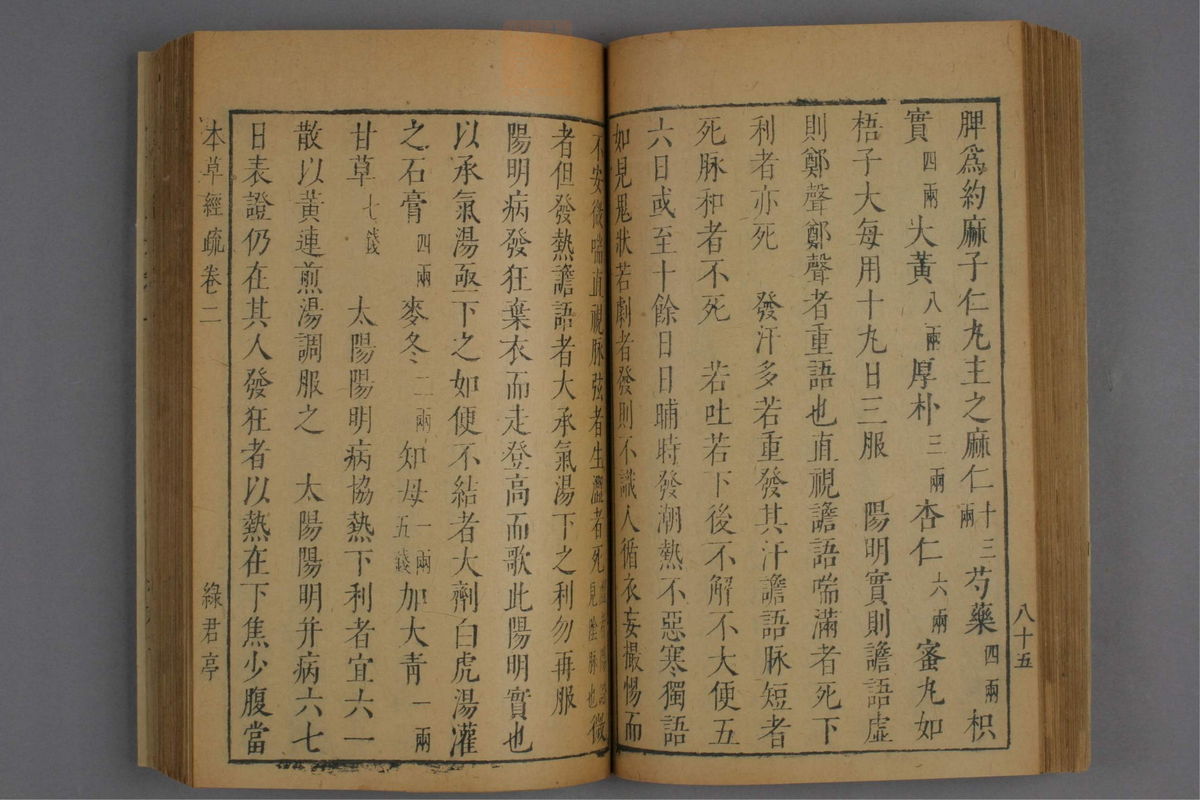 八十五
脾爲約麻子仁丸主之麻仁十三兩芍藥四兩枳
實四兩大黃八兩厚朴三兩杏仁六兩蜜丸如
梧子大每用十丸日三服 陽明實則譫語虛
則鄭聲鄭聲者重語也直視譫語喘滿者死下
利者亦死 發汗多若重發其汗譫語脉短者
死脉和者不死 若吐若下後不解不大便五
六日或至十餘日日晡時發潮熱不惡寒獨語
如見鬼狀若劇者發則不識人循衣妄撮惕而
不安微喘直視脉弦者生濇者死 見陰脉也微
者但發熱譫語者大承氣湯下之利勿再服
陽明病發狂棄衣而走登高而歌此陽明實也
以承氣湯亟下之如便不結者大劑白虎湯灌
之石膏四兩麥冬二兩知母一兩五錢加大青一兩
甘草七錢 太陽陽明病協熱下利者宜六一
散以黃連煎湯調服之 太陽陽明并病六七
日表證仍在其人發狂者以熱在下焦少腹當
本草經疏卷二 綠君亭